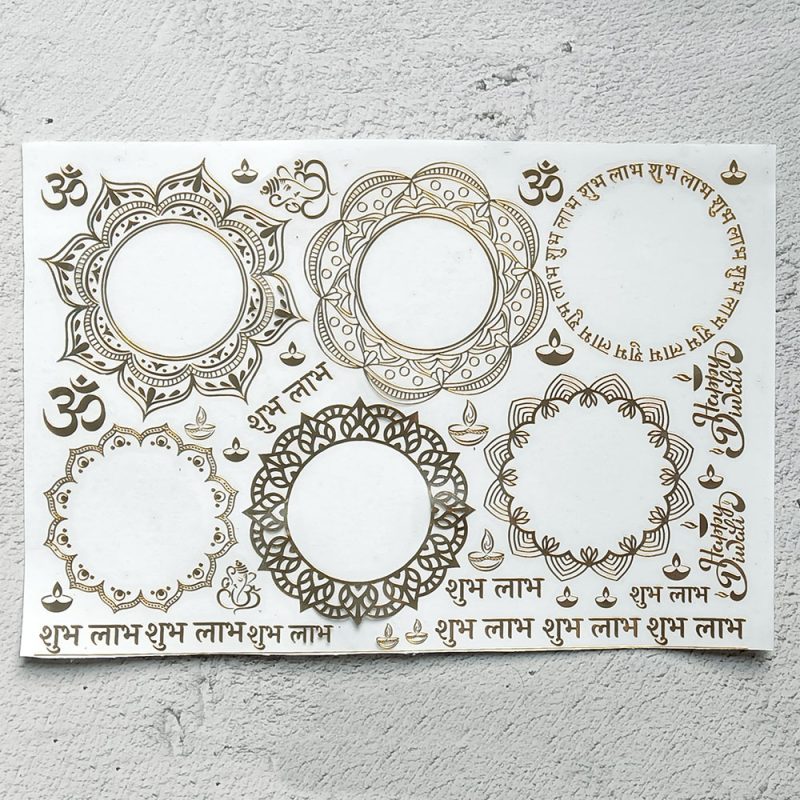 ॐ
ॐ
शुभ लाभ शुभ लाभ शुभ लाभ शुभ लाभ शुभ लाभ शुभ लाभ शुभ लाभ शुभ लाभ
शुभ लाभ
ॐ
Happy
Diwali
Happy
Diwali
शुभ लाभ
शुभ लाभ
शुभ लाभ शुभ लाभ शुभ लाभ
शुभ लाभ शुभ लाभ शुभ लाभ